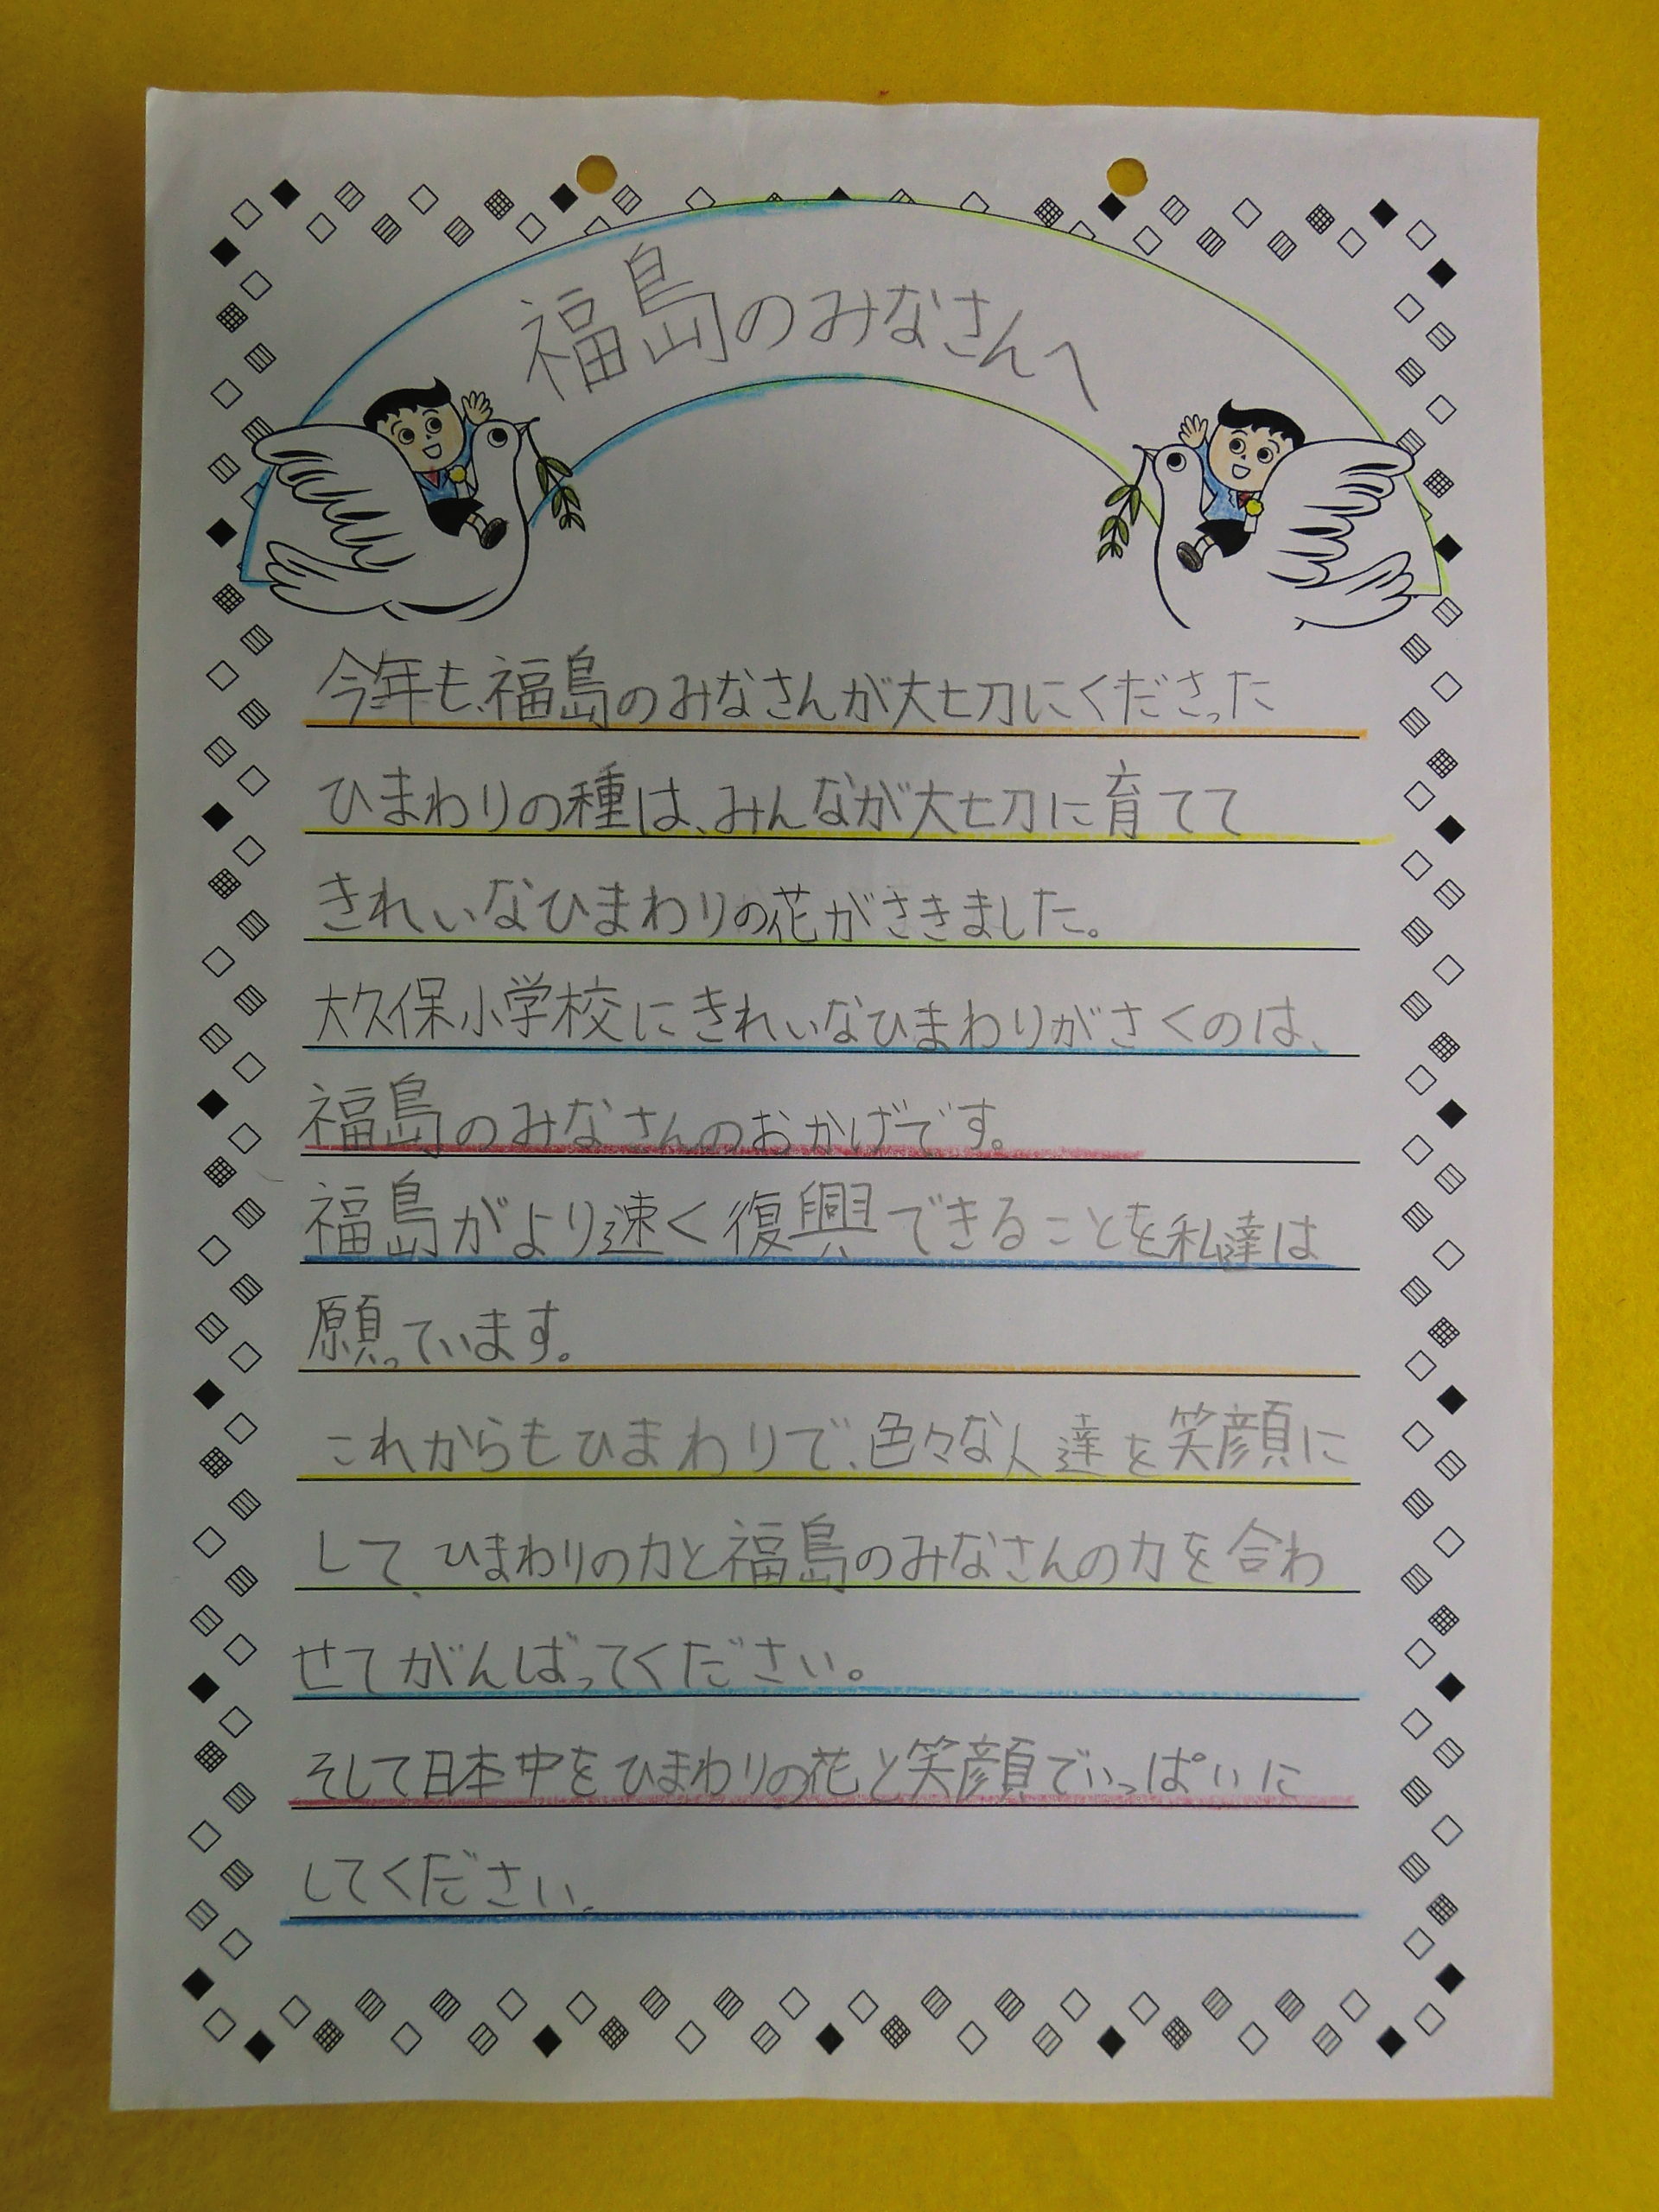 福島のみなさんへ
今年も、福島のみなさんが大切にくださった
ひまわりの種は、みんなが大切に育てて
きれいなひまわりの花がさきました。
大久保小学校にきれいなひまわりがさくのは、
福島のみなさんのおかげです。
福島がより速く復興できることを私達は
願っています。
これからもひまわりで、色々な人達を笑顔に
して、ひまわりの力と福島のみなさんの力を合わ
せてがんばってください。
そして日本中をひまわりの花と笑顔でいっぱいに
してください。